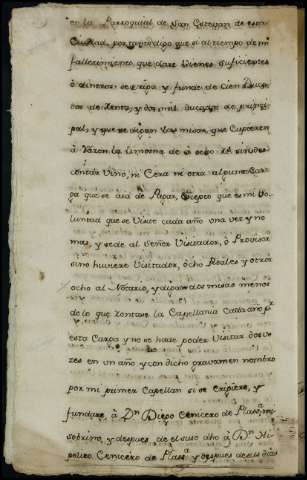 en la Parroquial de San Esteban de esta
Ciudad, por tanto digo que si al tiempo de mi
fallecimiento que dare Vienes suficientes
ó dineros se exija y funde de cien Duca
dos de Renta, y dos mil ducados de prinzi
pal, y que se digan las misas que Cupieren
á Razon la limosna de á ocho Rs sin des
contar Vino, ni Cera ni otra alguna Car
ga que se aia de Pagar, Excepto que es mi Vo
luntad que se Visite cada año una vez y no
mas, y se de al Señor Visitador, ó Provisor
sino huviere Visitador, ocho Reales y otros
ocho al Notario, y digan dos misas menos
de lo que Rentare la Capellania Cada año pr
esta Carga y no se hade poder Visitar dos ve
zes en un año y con dicho gravamen nombro
por mi primer Capellan si se Exigiere, y
fundare, á Dn Diego Cenicero de mi
sobrino, y despues de el suso dho á Dn Hi
polito Cenicero de y despues de sus dias